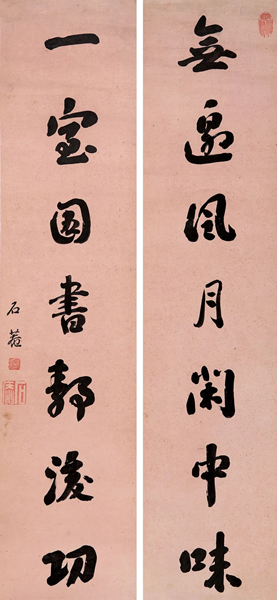 無邊風月閑中味
一室圖書靜後功
石菴